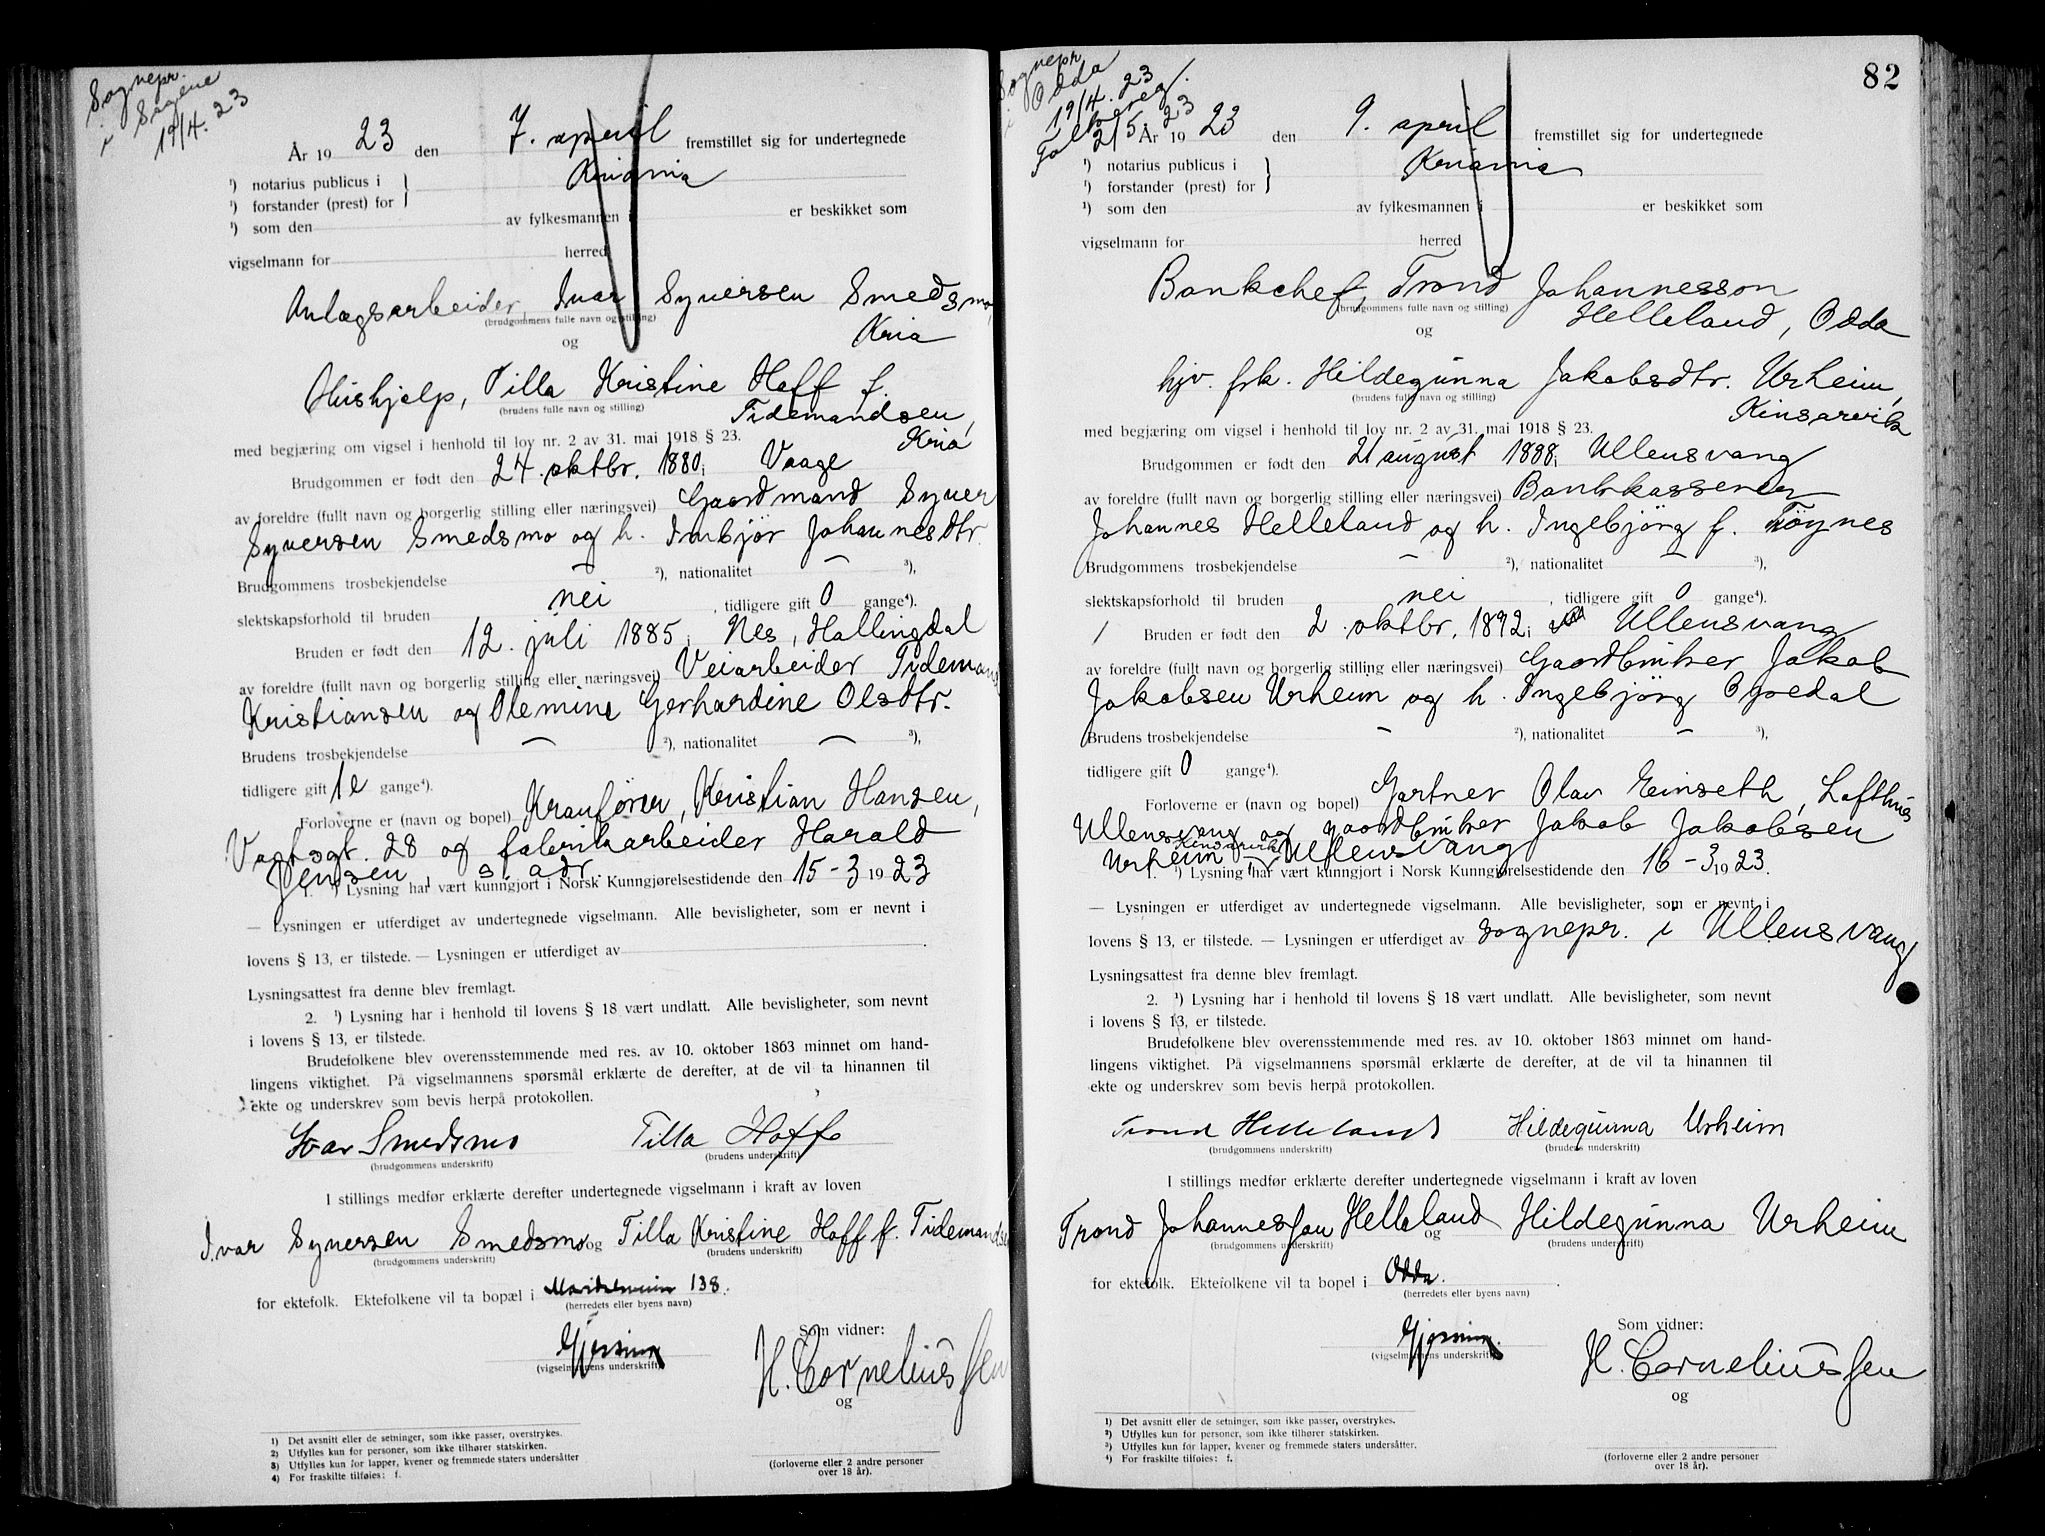 Sognepr.
i Sagene
19/4. 23
År 1923 den 7. april fremstillet sig for undertegnede
¹) notarius publicus i Kriania
¹) forstander (prest) for
¹) som den av fylkesmannen i er beskikket som
vigselmann for herred
Anlægsarbeider, Ivar Syversen Smedsmo,
(brudgommens fulle navn og stilling)
Kria
og
Hushjelp, Tilla Kristine Hoff f.
(brudens fulle navn og stilling)
Tidemandsen,
Kria
med begjæring om vigsel i henhold til lov nr. 2 av 31. mai 1918 § 23.
Brudgommen er født den 24. oktbr. 1880; Vaage
av foreldre (fullt navn og borgerlig stilling eller næringsvei) Gaardmand Syver
Syversen Smedsmo og h. Imbjør Johannesdtr.
Brudgommens trosbekjendelse — ²), nationalitet — ³),
slektskapsforhold til bruden nei, tidligere gift 0 gange⁴).
Bruden er født den 12. juli 1885; Nes, Hallingdal
av foreldre (fullt navn og borgerlig stilling eller næringsvei) Veiarbeider Tideman
Kristiansen og Olemine Gerhardine Olsdtr.
Brudens trosbekjendelse — ²), nationalitet — ³),
tidligere gift 1 e gange⁴).
Forloverne er (navn og bopel) Kranfører, Kristian Hansen,
Vogtsgt. 28 og fabrikarbeider Harald
Jensen, s. adr.
1. ¹) Lysning har vært kunngjort i Norsk Kunngjørelsestidende den 15-3 1923
— Lysningen er utferdiget av undertegnede vigselmann. Alle bevisligheter, som er nevnt i
lovens § 13, er tilstede. — Lysningen er utferdiget av
Lysningsattest fra denne blev fremlagt.
2. ¹) Lysning har i henhold til lovens § 18 vært undlatt. Alle bevisligheter, som nevnt
i lovens § 13, er tilstede.
Brudefolkene blev overensstemmende med res. av 10. oktober 1863 minnet om hand-
lingens viktighet. På vigselmannens spørsmål erklærte de derefter, at de vil ta hinannen til
ekte og underskrev som bevis herpå protokollen.
Ivar Smedsmo Tilla Hoff
(brudgommens underskrift) (brudens underskrift)
I stillings medfør erklærte derefter undertegnede vigselmann i kraft av loven
Ivar Syversen Smedsmo og Tilla Kristine Hoff f. Tidemandsen
(brudgommens underskrift) (brudens underskrift)
for ektefolk. Ektefolkene vil ta bopæl i Maridalsveien 138.
(herredets eller byens navn)
Gjessing
(vigselmannens underskrift)
Som vidner:
H. Corneliussen
og
1) Det avsnitt eller de setninger, som ikke passer, overstrykes.
2) Utfylles kun for personer, som ikke tilhører statskirken.
3) Utfylles kun for lapper, kvener og fremmede staters undersåtter
4) For fraskilte tilføies: f.
(forloverne eller 2 andre personer
over 18 år).
82
Sognepr
i Odda
19/4. 23
Folkereg.
2/5 23
År 1923 den 9. april fremstillet sig for undertegnede
¹) notarius publicus i Kriania
¹) forstander (prest) for
¹) som den av fylkesmannen i er beskikket som
vigselmann for herred
Bankchef, Trond Johannesson
(brudgommens fulle navn og stilling)
Helleland, Odda
og
hjv. frk. Hildegunna Jakobsdtr. Urheim,
(brudens fulle navn og stilling)
Kinsarvik
med begjæring om vigsel i henhold til lov nr. 2 av 31. mai 1918 § 23.
Brudgommen er født den 21 august 1888; Ullensvang
av foreldre (fullt navn og borgerlig stilling eller næringsvei) Bankkasserer
Johannes Helleland og h. Ingebjørg f. Tøynes
Brudgommens trosbekjendelse — ²), nationalitet — ³),
slektskapsforhold til bruden nei, tidligere gift 0 gange⁴).
/ Bruden er født den 2. oktbr. 1892; Ullensvang
av foreldre (fullt navn og borgerlig stilling eller næringsvei) Gaardbruker Jakob
Jakobsen Urheim og h. Ingebjørg Opedal
Brudens trosbekjendelse — ²), nationalitet — ³),
tidligere gift 0 gange⁴).
Forloverne er (navn og bopel) Gartner Olav Einseth, Lofthus
Ullensvang og gaardbruker Jakob Jakobsen
Urheim Kinsarvik Ullensvang
1. ¹) Lysning har vært kunngjort i Norsk Kunngjørelsestidende den 16-3 1923.
— Lysningen er utferdiget av undertegnede vigselmann. Alle bevisligheter, som er nevnt i
lovens § 13, er tilstede. — Lysningen er utferdiget av sognepr. i Ullensvang
Lysningsattest fra denne blev fremlagt.
2. ¹) Lysning har i henhold til lovens § 18 vært undlatt. Alle bevisligheter, som nevnt
i lovens § 13, er tilstede.
Brudefolkene blev overensstemmende med res. av 10. oktober 1863 minnet om hand-
lingens viktighet. På vigselmannens spørsmål erklærte de derefter, at de vil ta hinannen til
ekte og underskrev som bevis herpå protokollen.
Trond Helleland Hildegunna Urheim
(brudgommens underskrift) (brudens underskrift)
I stillings medfør erklærte derefter undertegnede vigselmann i kraft av loven
Trond Johannesson Helleland og Hildegunna Urheim
(brudgommens underskrift) (brudens underskrift)
for ektefolk. Ektefolkene vil ta bopel i Odda.
(herredets eller byens navn)
Gjessing.
(vigselmannens underskrift)
Som vidner:
H. Corneliussen
og
1) Det avsnitt eller de setninger, som ikke passer, overstrykes.
2) Utfylles kun for personer, som ikke tilhører statskirken.
3) Utfylles kun for lapper, kvener og fremmede staters undersåtter.
4) For fraskilte tilføies: f.
(forloverne eller 2 andre personer
over 18 år).